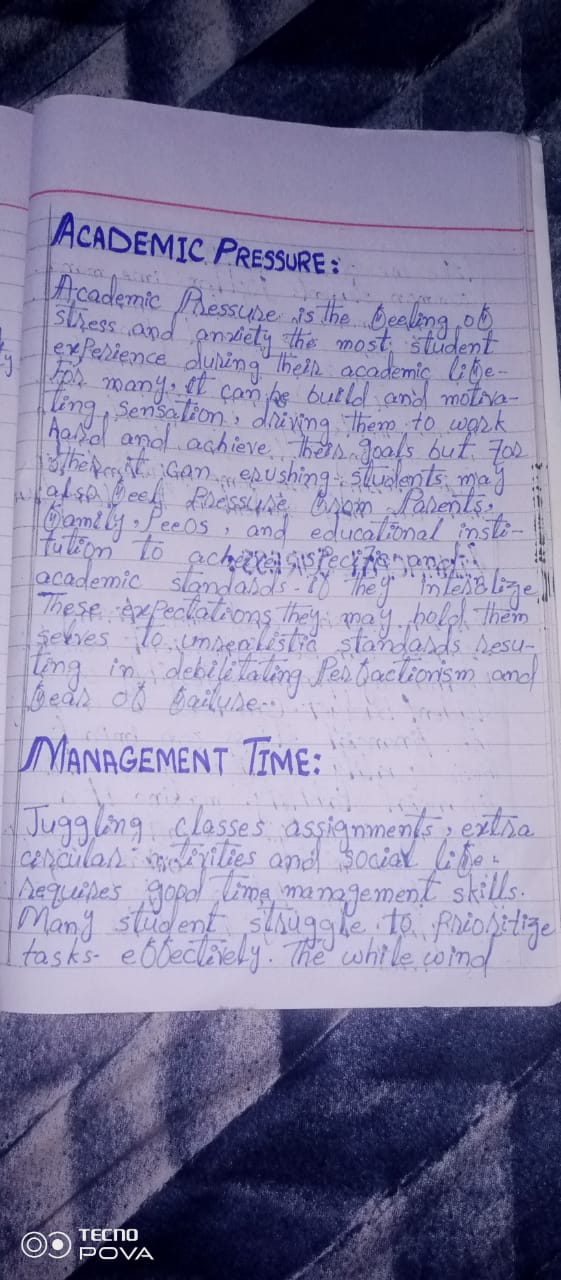 ACADEMIC PRESSURE:
Academic Pressure is the feeling of
stress and anxiety the most student
experience during their academic life-
For many, it can be build and motiva-
ting sensation, driving them to work
hard and achieve their goals but For
other it can crushing. students may
also feel Pressure from Parents,
family, Peeos, and educational insti-
tution to
academic standards- if they interlize
These expectations they may hold them
selves to unrealistic standards resu-
ting in debilitating Perfactionism and
fear of failure.
MANAGEMENT TIME:
Juggling classes assignments, extra
circular activities and social life-
requires good time management skills.
Many student struggle to prioritize
tasks- effectively. The while wind
TECNO
POVA